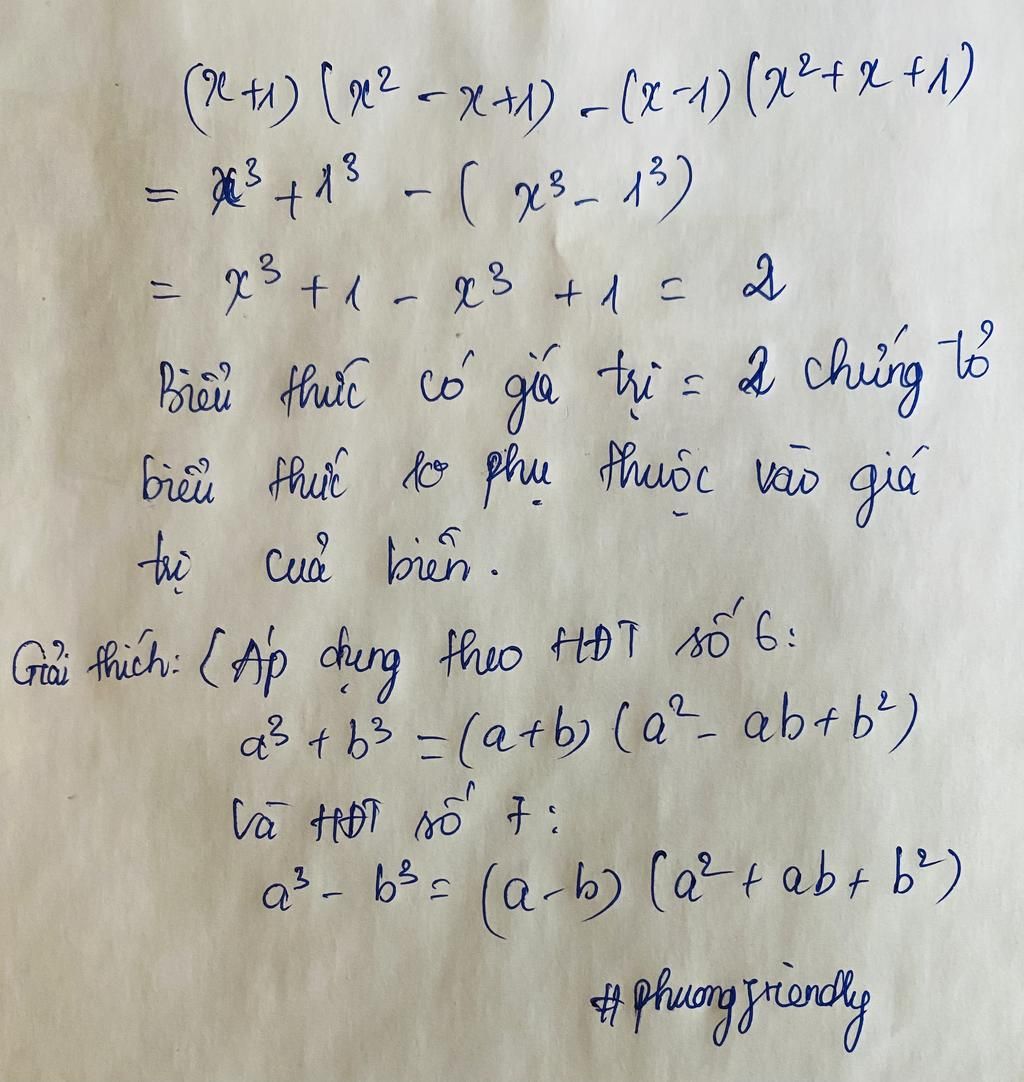 (x+1) (x² - x+1) - (x-1) (x²+x+1)
= x³ + 1³ - ( x³ - 1³)
= x³ + 1 - x³ + 1 = 2
Biểu thức có giá trị = 2 chứng tỏ
biểu thức ko phụ thuộc vào giá
trị cuả biến.
Giải thích: (Áp dụng theo HĐT số 6:
a³ + b³ = (a+b) (a² - ab+b²)
Và HĐT số 7:
a³ - b³ = (a-b) (a² + ab + b²)
#phuongfriendly